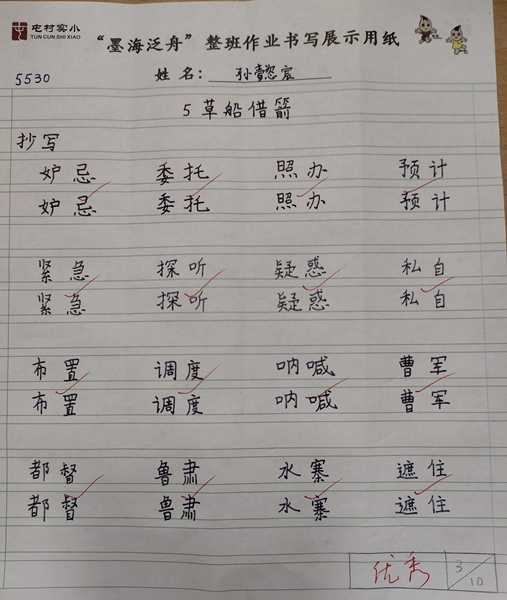 屯村实小
TUN CUN SHI XIAO
“墨海泛舟”整班作业书写展示用纸
5530
姓名：孙懿宸
5 草船借箭
抄写
妒忌 委托 照办 预计
妒忌 委托 照办 预计
紧急 探听 疑惑 私自
紧急 探听 疑惑 私自
布置 调度 呐喊 曹军
布置 调度 呐喊 曹军
都督 鲁肃 水寨 遮住
都督 鲁肃 水寨 遮住
优秀 3/10